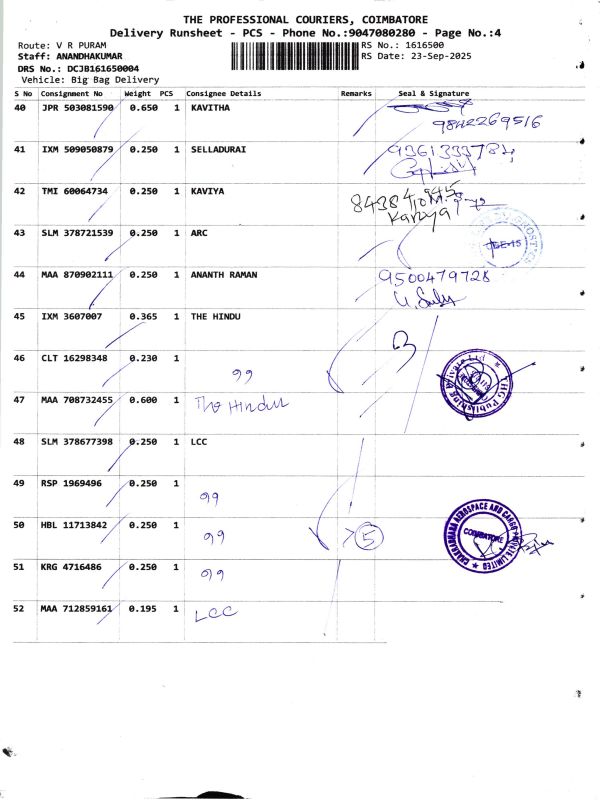 THE PROFESSIONAL COURIERS, COIMBATORE
Delivery Runsheet - PCS - Phone No.:9047080280 - Page No.:4
Route: V R PURAM
RS No.: 1616500
Staff: ANANDHAKUMAR
RS Date: 23-Sep-2025
DRS No.: DCJB161650004
Vehicle: Big Bag Delivery
S No Consignment No Weight PCS Consignee Details Remarks Seal & Signature
40 JPR 503081590 0.650 1 KAVITHA
9842269516
41 IXM 509050879 0.250 1 SELLADURAI
42 TMI 60064734 0.250 1 KAVIYA
Kaviya
43 SLM 378721539 0.250 1 ARC
44 MAA 870902111 0.250 1 ANANTH RAMAN 9500479728
45 IXM 3607007 0.365 1 THE HINDU
3
46 CLT 16298348 0.230 1 99
THG Publishing
47 MAA 708732455 0.600 1 The Hindu
48 SLM 378677398 0.250 1 LCC
49 RSP 1969496 0.250 1 99
50 HBL 11713842 0.250 1 99 5
CHAKRADHARA AEROSPACE AND CARGO PRIVATE LIMITED
COIMBATORE
51 KRG 4716486 0.250 1 99
52 MAA 712859161 0.195 1 LCC